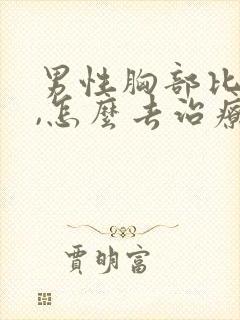 男性胸部比
,怎麼去治療
賈明富